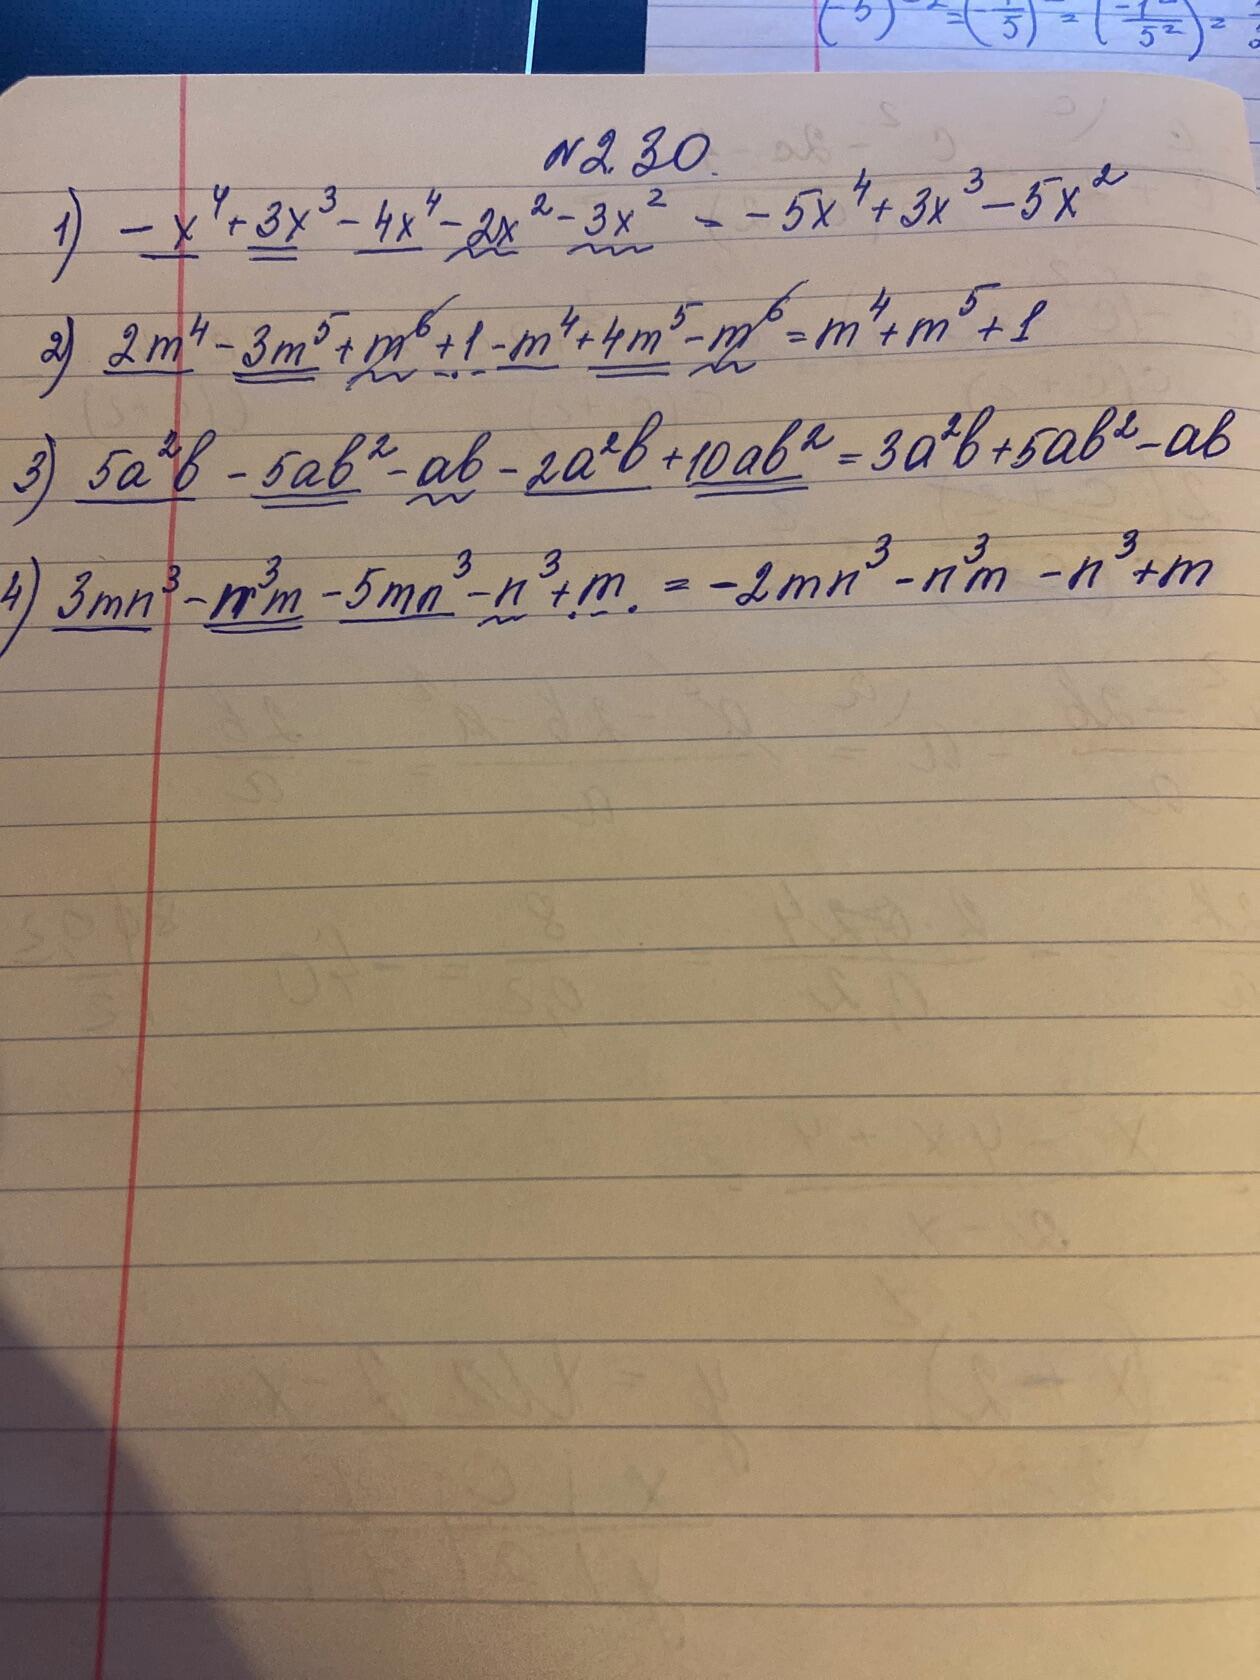 (-5)⁻² = (-1/5)² = (-1²/5²) =
N 2.30.
1) -x⁴ + 3x³ - 4x⁴ - 2x² - 3x² = -5x⁴ + 3x³ - 5x²
2) 2m⁴ - 3m⁵ + m⁶ + 1 - m⁴ + 4m⁵ - m⁶ = m⁴ + m⁵ + 1
3) 5a²b - 5ab² - ab - 2a²b + 10ab² = 3a²b + 5ab² - ab
4) 3mn³ - n³m - 5mn³ - n³ + m = -2mn³ - n³m - n³ + m